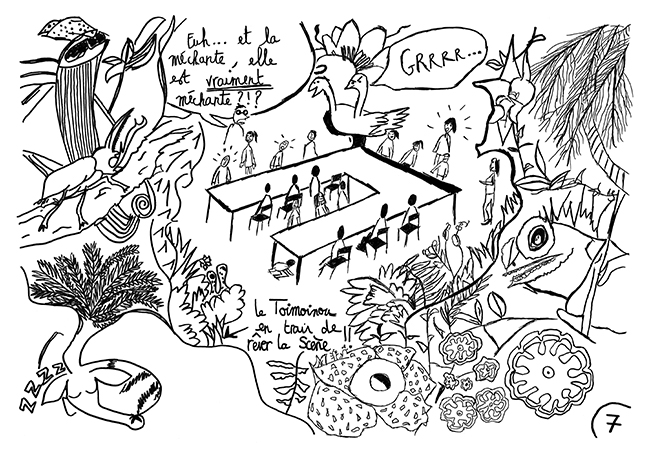 Euh... et la
méchante, elle
est vraiment
méchante?!?
GRRRR...
le Toimoinou
en train de
rêver la scène!!
ZZZZZ
7